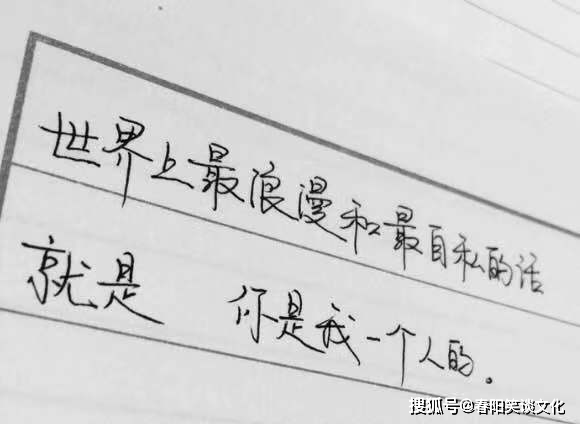 世界上最浪漫和最自私的话
就是 你是我一个人的。
搜狐号@春阳笑谈文化